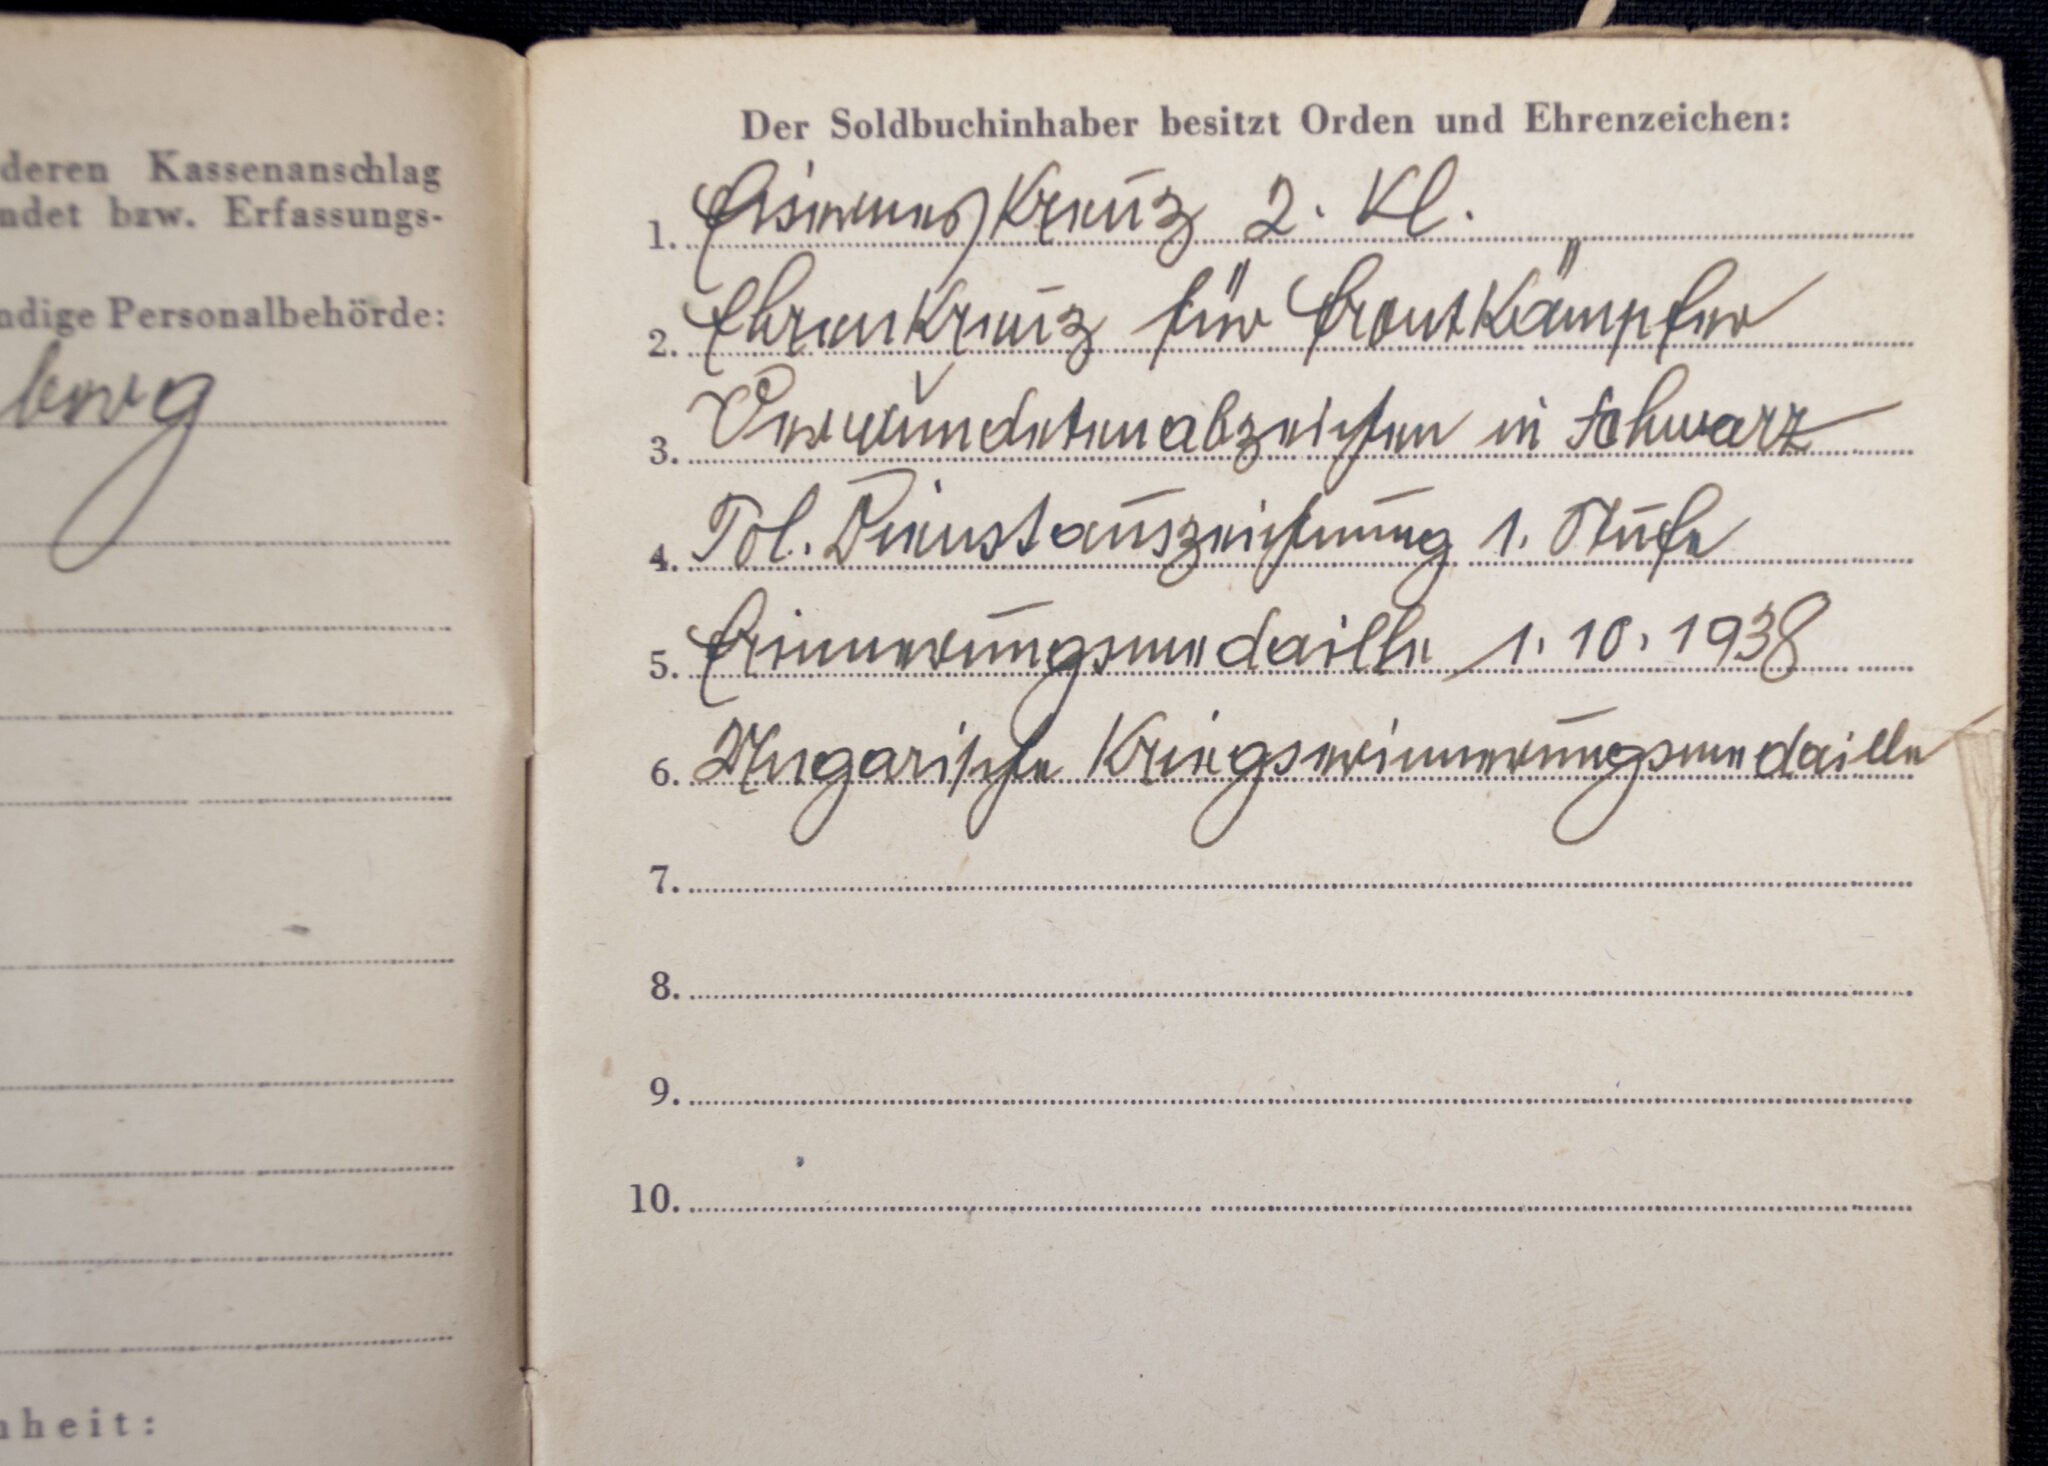 deren Kassenanschlag
ndet bzw. Erfassungs-
ndige Personalbehörde:
berg
nheit:
Der Soldbuchinhaber besitzt Orden und Ehrenzeichen:
1. Eisernes Kreuz 2. Kl.
2. Ehrenkreuz für Frontkämpfer
3. Verwundetenabzeichen in Schwarz
4. Pol. Dienstauszeichnung 1. Stufe
5. Erinnerungsmedaille 1. 10. 1938
6. Ungarische Kriegserinnerungsmedaille
7.
8.
9.
10.